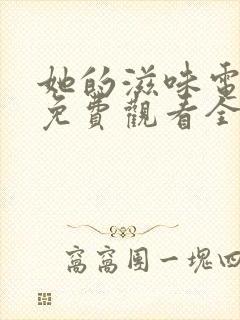 她的滋味電
免費觀看全
窩窩團一塊四